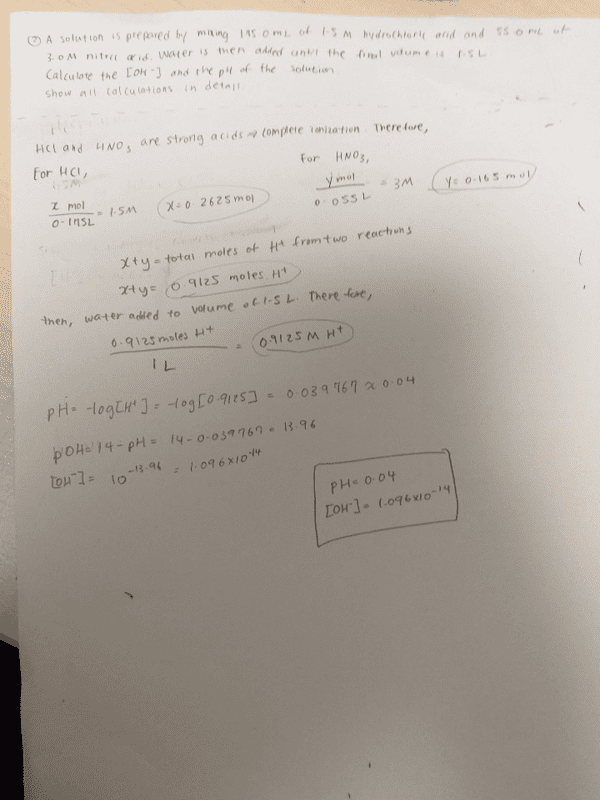 ② A solution is prepared by mixing 175.0 mL of 1.5 M hydrochloric acid and 55.0 mL of
3.0M nitric acid. Water is then added until the final volume is 1.5 L
Calculate the [OH⁻] and the pH of the solution.
show all calculations in detail.
HCl and HNO₃ are strong acids → complete ionization. Therefore,
For HCl,
x mol / 0.175L = 1.5M
X=0.2625mol
For HNO₃,
y mol / 0.055L = 3M
Y=0.165 mol
x+y= total moles of H⁺ from two reactions
x+y= 0.9125 moles H⁺
then, water added to volume of 1.5 L. There fore,
0.9125 moles H⁺ / 1L = 0.9125 M H⁺
pH= -log[H⁺] = -log[0.9125] = 0.039767 ≈ 0.04
pOH= 14-pH = 14-0.039767 = 13.96
[OH⁻]= 10^-13.96 = 1.096x10^-14
pH=0.04
[OH⁻]= 1.096x10^-14